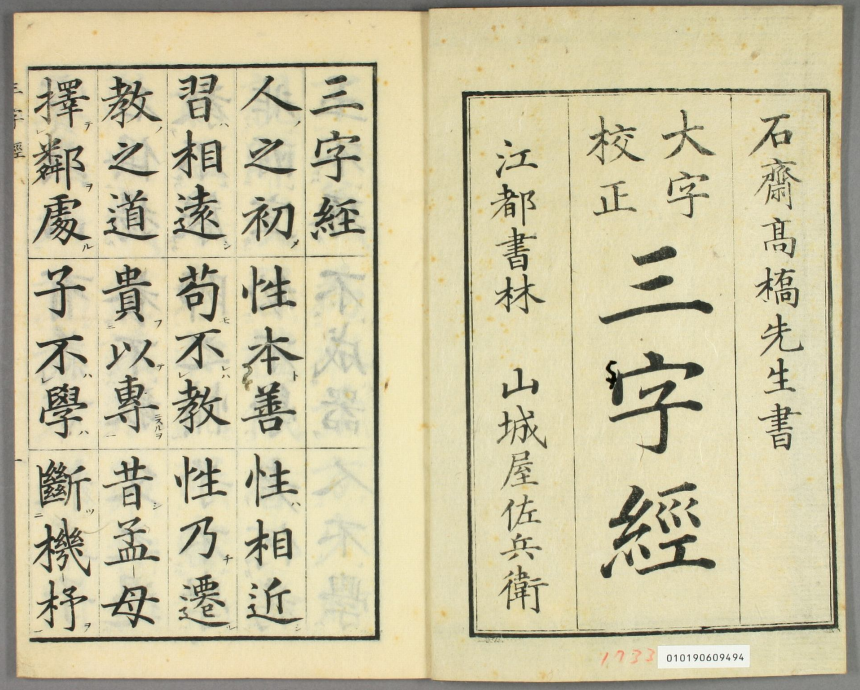 石齋髙橋先生書
大字
校正
三字經
江都書林 山城屋佐兵衛
三字經
人之初 性本善 性相近
習相遠 苟不教 性乃遷
教之道 貴以專 昔孟母
擇鄰處 子不學 斷機杼
三字經
一
1733
010190609494